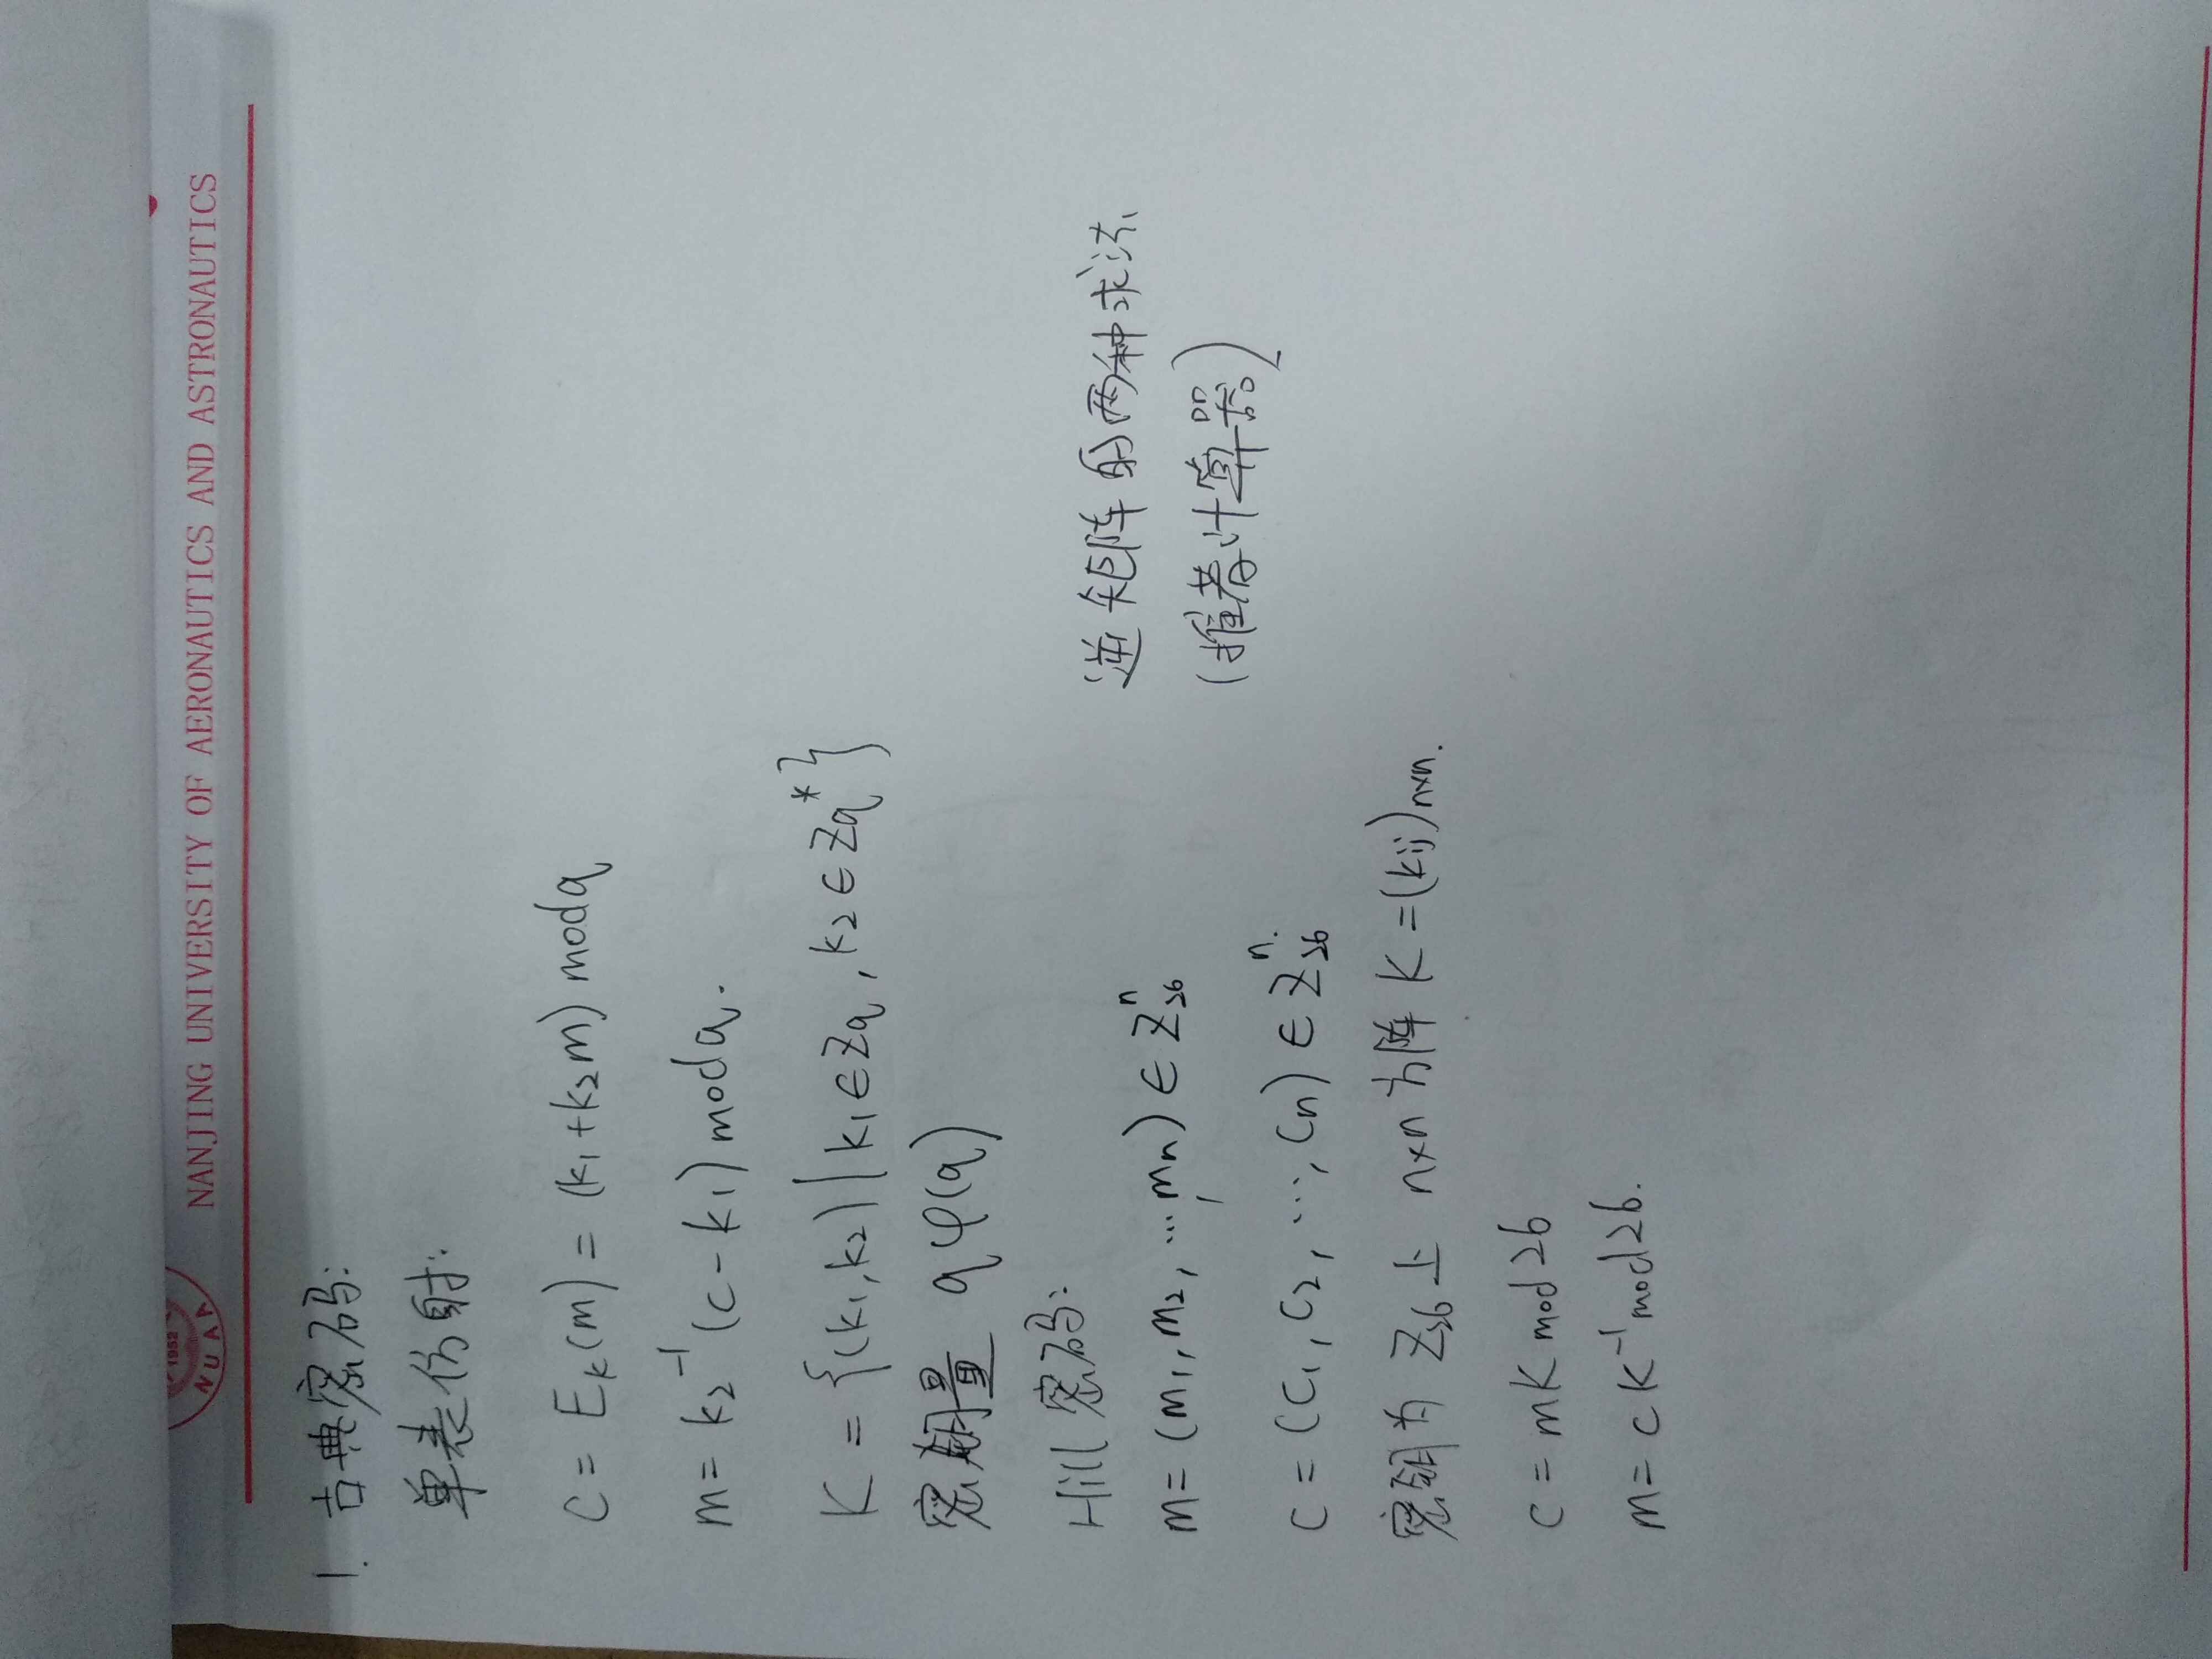 1952
NUAA
NANJING UNIVERSITY OF AERONAUTICS AND ASTRONAUTICS
1. 古典密码:
单表仿射:
C = Eₖ(m) = (k₁+k₂m) mod q
m = k₂⁻¹(c-k₁) mod q.
K = {(k₁,k₂)|k₁∈Zq, k₂∈Zq*}
密钥量 qφ(q)
Hill 密码:
m = (m₁, m₂, … mₙ) ∈ Z₂₆ⁿ
c = (c₁, c₂, …, cₙ) ∈ Z₂₆ⁿ
密钥为 Z₂₆上 n×n 方阵 K = (kij)n×n.
c = mK mod 26
m = cK⁻¹ mod 26.
逆矩阵的两种求法
(推荐计算器)